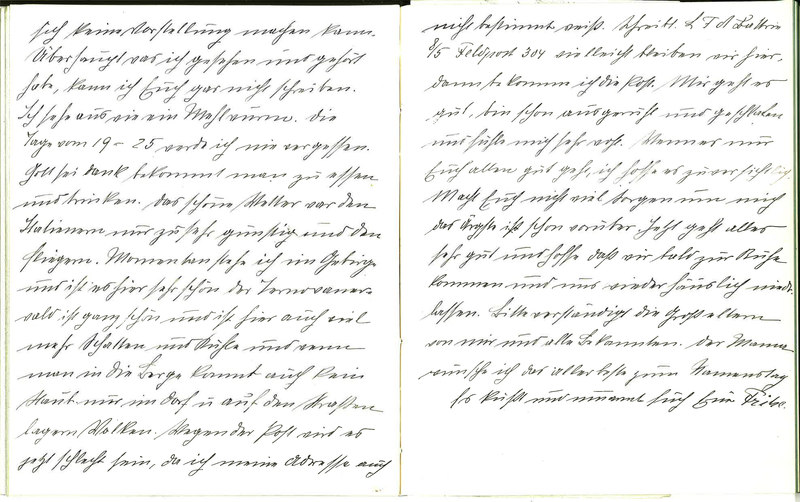 sich keine Vorstellung machen kann.
Überhaupt was ich gesehen und gehört
habe, kann ich Euch gar nicht schreiben.
Ich sehe aus wie ein Mehlwurm. Die
Tage vom 19 – 25 werde ich nie vergessen.
Gott sei dank bekommt man zu essen
und trinken. Das schöne Wetter war den
Italienern nur zu sehr günstig und den
Fliegern. Momentan stehe ich im Gebirge
und ist es hier sehr schön der Ternovaner-
wald ist ganz schön und ist hier auch viel
mehr Schatten und Kühle und wenn
man in die Berge kommt auch kein
Staub nur im Dorf u auf den Strassen
lagern Wolken. Wegen der Post wird es
jetzt schlecht sein, da ich meine Adresse auch
nicht bestimmt weiß. Schreibt. Batterie
8/5 Feldpost 304 vielleicht bleiben wir hier,
dann bekomm ich die Post. Mir geht es
gut, bin schon ausgeruht und geschlafen
und fühle mich sehr wohl. Wenn es nur
Euch allen gut geht, ich hoffe es zuversichtlich.
Macht Euch nicht viel Sorgen um mich
das Ärgste ist schon vorüber. Jetzt geht alles
sehr gut und hoffe daß wir bald zur Ruhe
kommen und uns wieder häuslich nieder-
lassen. Bitte verständigt die Großeltern
von mir und alle Bekannten. Der Mama
wünsche ich das allerbeste zum Namenstag
Es küßt und umarmt Euch Euer Fritz.